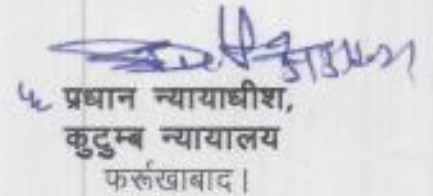 प्रधान न्यायाधीश,
कुटुम्ब न्यायालय
फर्रूखाबाद।